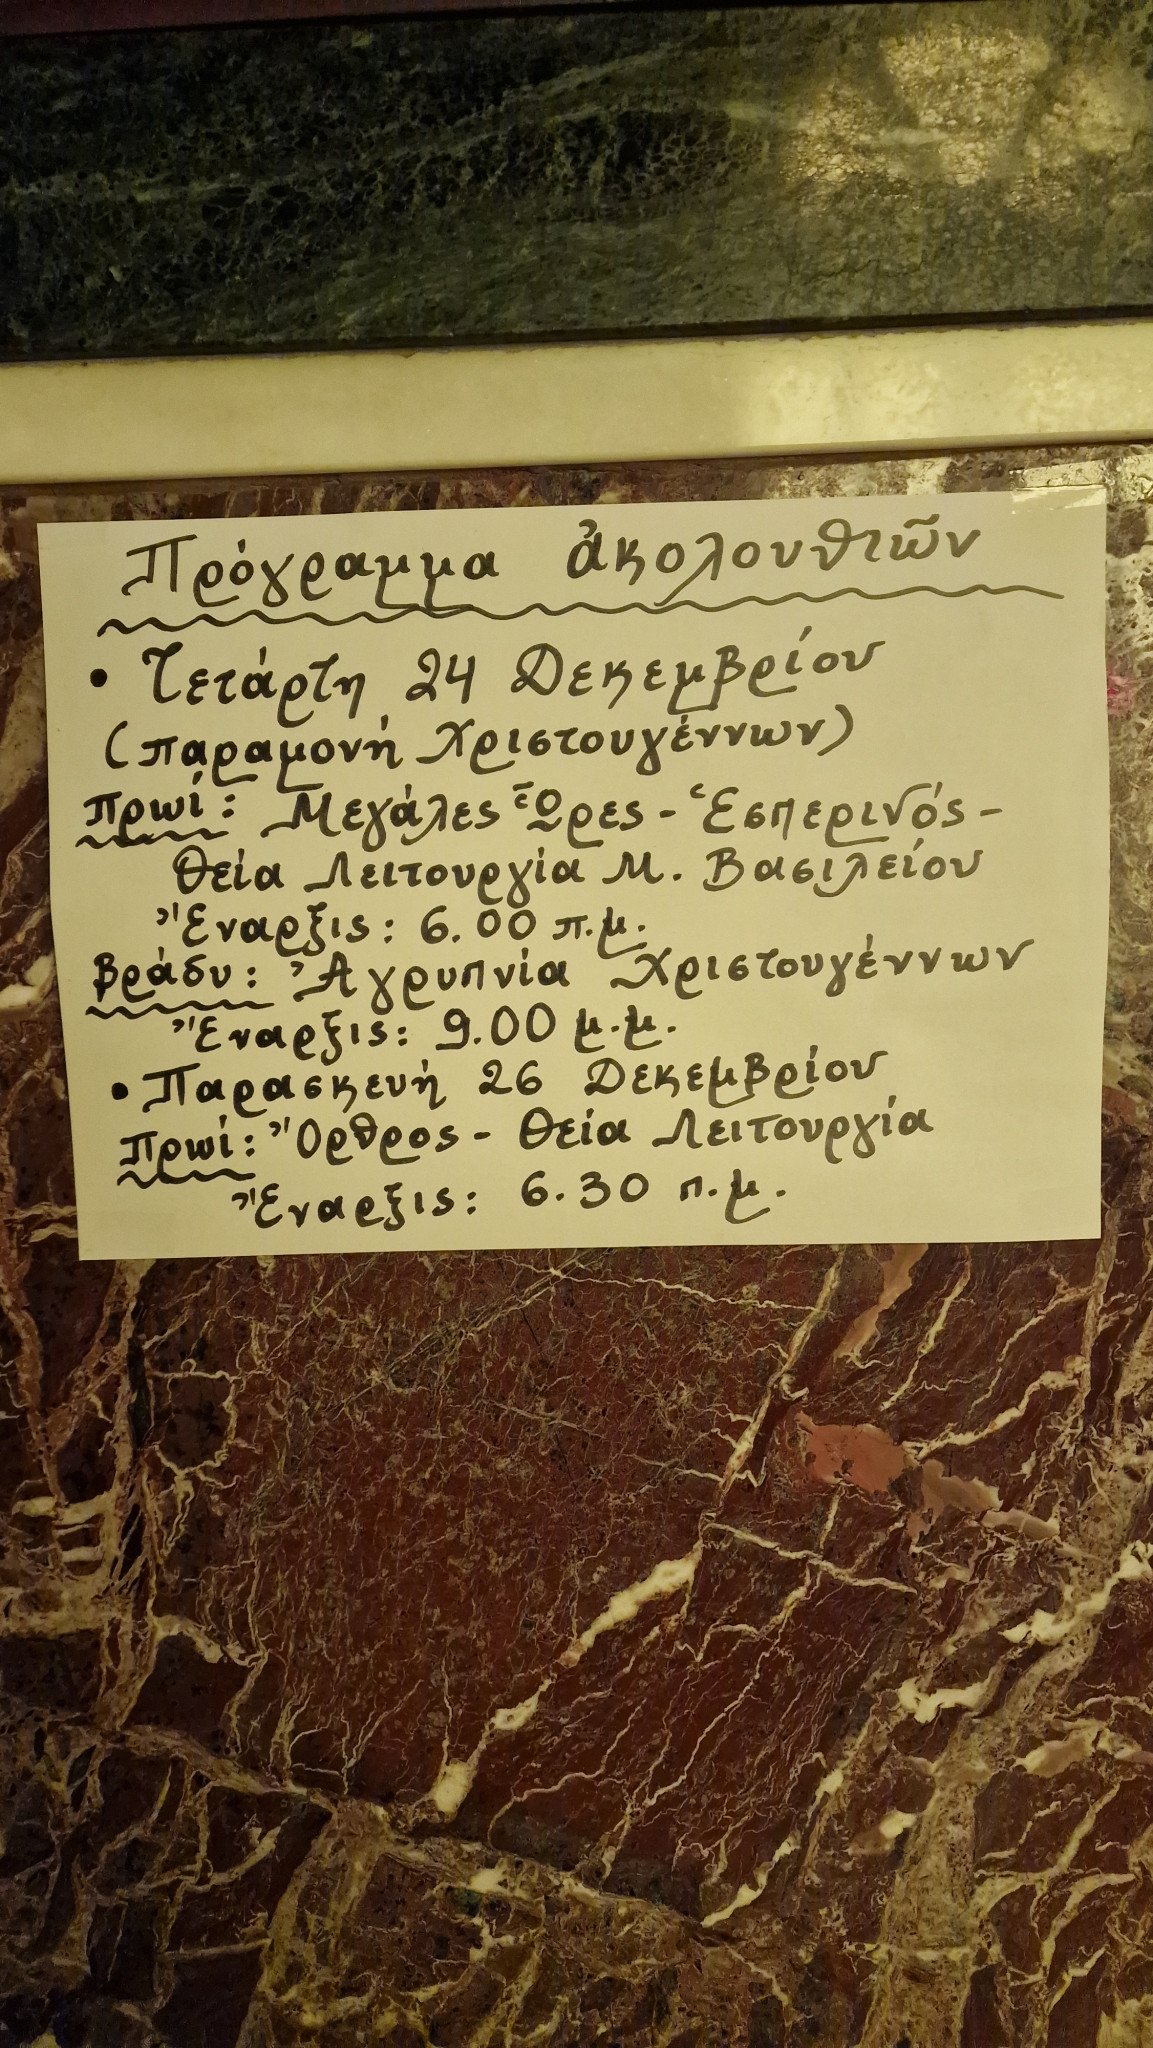 Πρόγραμμα ἀκολουθιῶν
• Τετάρτη 24 Δεκεμβρίου
(παραμονή Χριστουγέννων)
Πρωί: Μεγάλες Ὧρες - Ἑσπερινός -
Θεία Λειτουργία Μ. Βασιλείου
Ἔναρξις: 6.00 π.μ.
Βράδυ: Ἀγρυπνία Χριστουγέννων
Ἔναρξις: 9.00 μ.μ.
• Παρασκευή 26 Δεκεμβρίου
Πρωί: Ὄρθρος - Θεία Λειτουργία
Ἔναρξις: 6.30 π.μ.